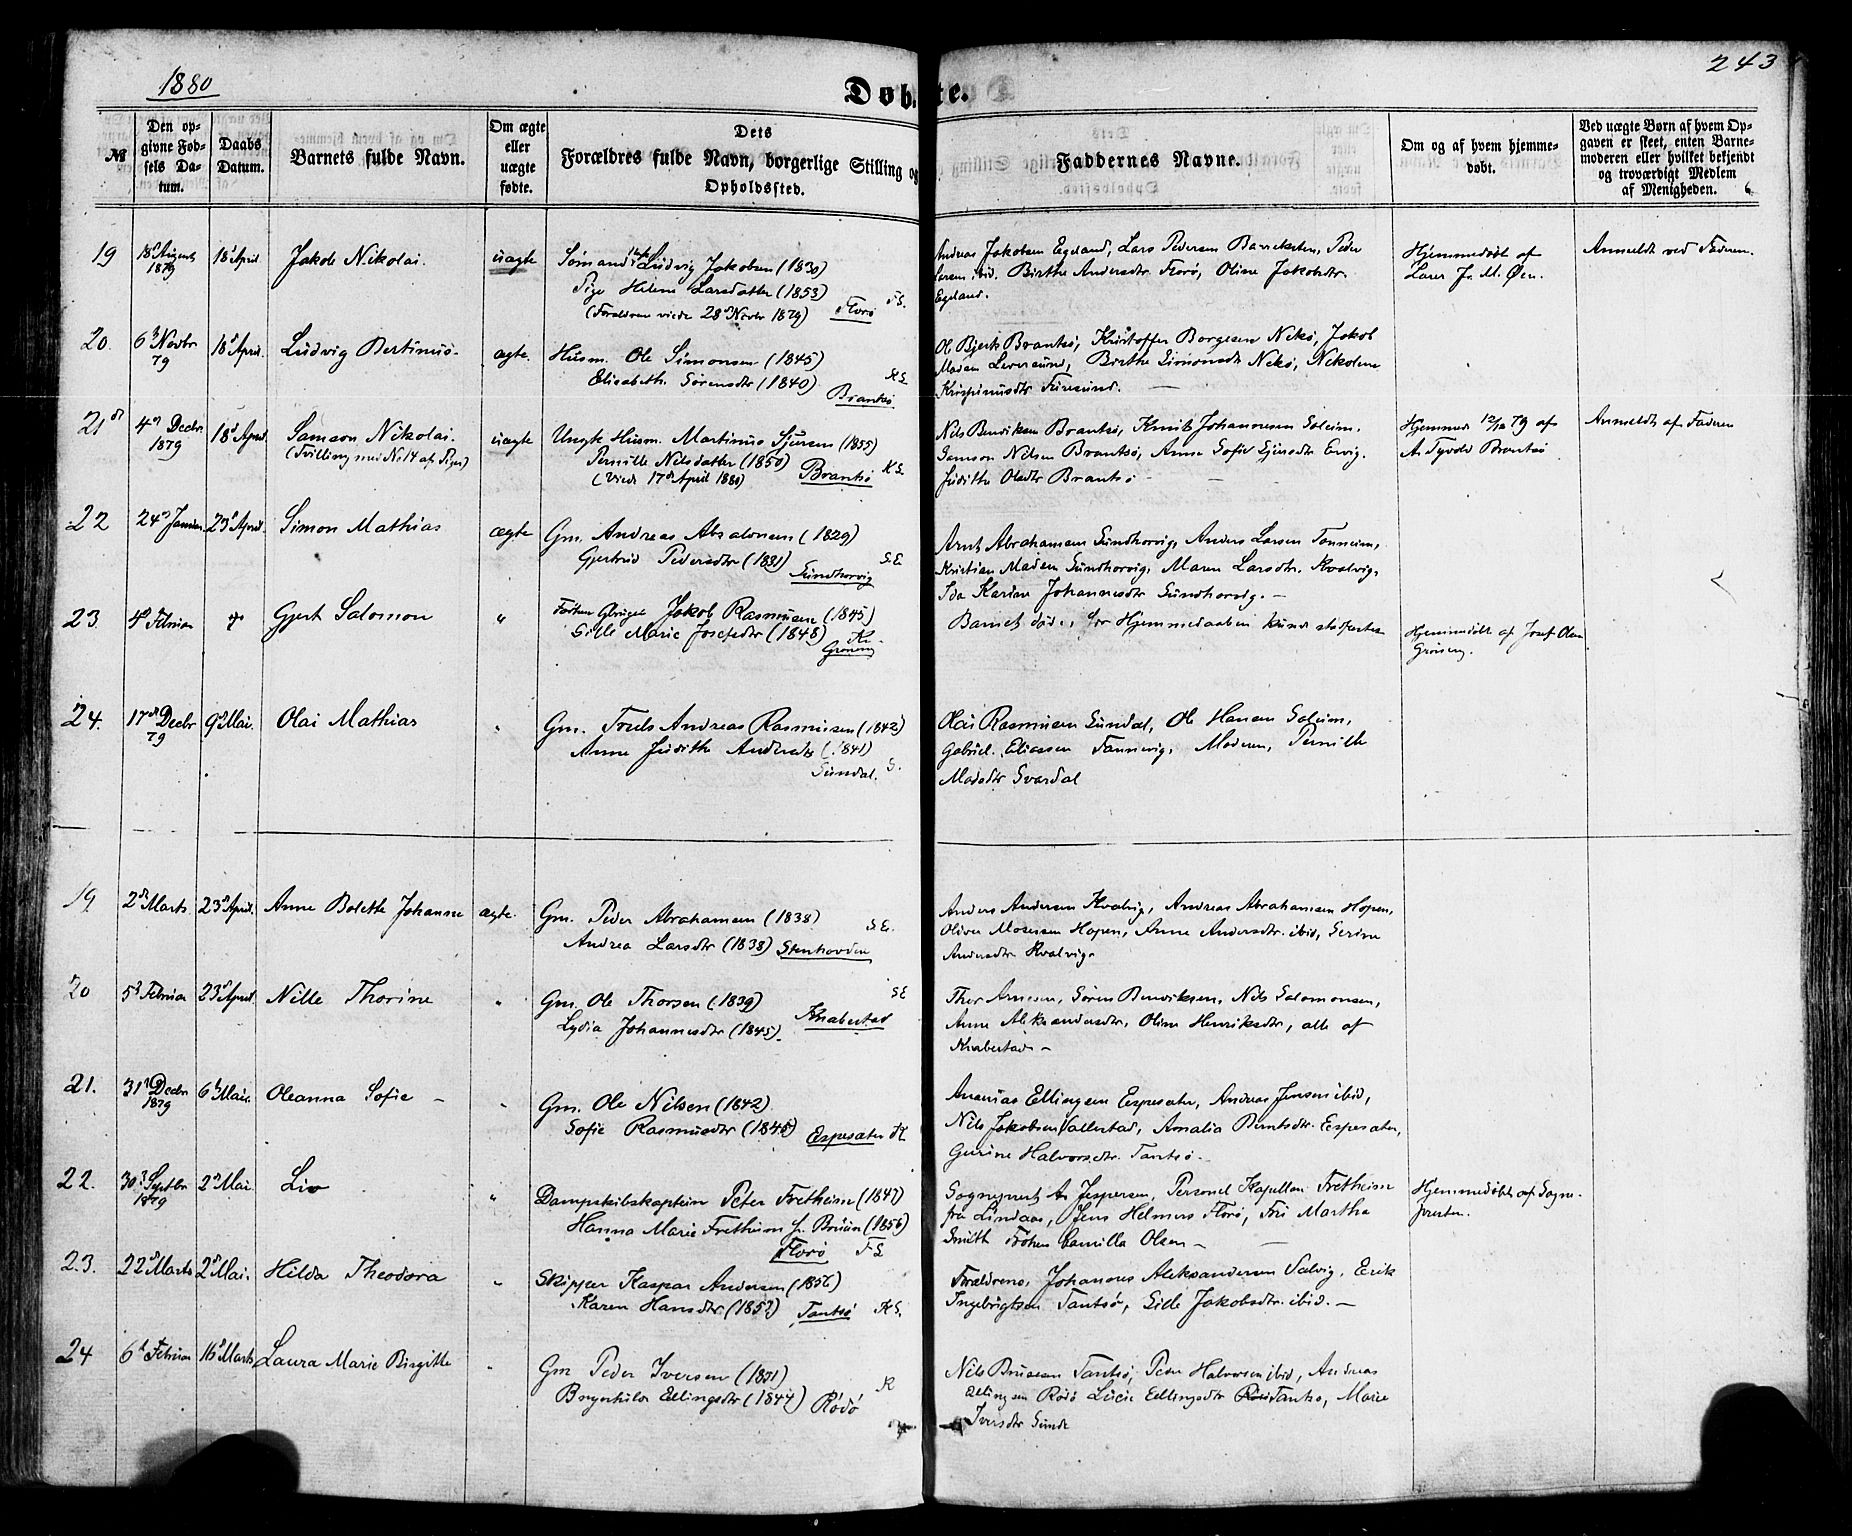 1880
243
Døbte.
№
Den op-
givne Fød-
sels Da-
tum.
Daabs
Datum.
Barnets fulde Navn.
Om ægte
eller
uægte
fødte.
Dets
Forældres fulde Navn, borgerlige Stilling og
Opholdssted.
Faddernes Navne.
Om og af hvem hjemme-
døbt.
Ved uægte Børn af hvem Op-
gaven er skeet, enten Barne-
moderen eller hvilket bekjendt
og troværdigt Medlem
af Menigheden.
19
18d August
1879
18d April
Jakob Nikolai.
uægte
Sømand Ludvig Jakobsen (1830)
Pige Helene Larsdatter (1853)
(Forældrene viede 28d Novbr 1879)
Florø
F.S.
Andreas Jakobsen Egeland, Lars Pedersen Barekster, Peder
Larsen ibid. Birthe Andersdtr Florø, Oline Jakobsdtr
Egeland.
Hjemmedøbt af
Lærer J. M. Øen.
Anmeldt ved Faderen.
20.
6d Novbr
79
18d April.
Ludvig Bertinus.
ægte.
Husm. Ole Simonsen (1845)
Elisabeth Sørensdtr (1840)
Brantsø
K S
Ol Bjerk Brantsø, Kristoffer Borgesen Nekø, Jakob
Madsen Leversund, Birthe Simonsdtr Nekø, Nikoline
Krispinusdtr Furesund. —
21d
4d Decbr
1879
18d April
Samson Nikolai.
(Tvilling med No 14 af Piger)
uægte
Ungk Husm. Martinus Sjursen (1855)
Pernille Nilsdatter (1850)
(Viede 17d April 1880)
Brantsø
K S.
Nils Bendiksen Brantsø, Knut Johannesen Soleim.
Samson Nilsen Brantsø, Anne Sofie Sjursdtr Ervig.
Judithe Olsdtr Brantsø —
Hjemmed 12/12 79 af
A. Tyvold Brantsø
Anmeldt af Faderen
22
24d Januar
23d April
Simon Mathias
ægte
Gm. Andreas Absalonsen (1829)
Gjertrud Pedersdtr (1831)
Sundhorvig
S.E
Arnt Abrahamsen Sundhorvig, Anders Larsen Tonheim,
Kristian Madsen Sundhorvig, Maren Larsdtr. Kvalvig,
Ida Karine Johannesdtr Sundhorvig. —
23.
4d Februar
Gjert Salomon
"
Jakob Rasmusen (1845)
Sille Marie Josefsdtr (1848)
Grøneng
Barnet døde, før Hjemmedaaben kunde stadfæstes
Hjemmedøbt af Josef Olsen
Grøneng.
24.
17d Decbr
79
9d Mai.
Olai Mathias
"
Gm. Truls Andreas Rasmusen (1842)
Anne Judithe Andersdtr (1841)
Sundal.
S.
Olai Rasmusen Sundal, Ole Hansen Soleim,
Gabriel Eliassen Tannevig, Moderen, Pernille
Madsdtr Svardal
19
2d Marts
23d April.
Anne Bolette Johanne
ægte.
Gm. Peder Abrahamsen (1838)
Andrea Larsdtr (1838)
Stenhovden
S.E.
Anders Andersen Kvalvig, Andreas Abrahamsen Hopen,
Oliver Mosesen Hopen, Anne Andersdtr. ibid, Serine
Andersdtr Kvalvig.
20
5d Februar
23d April
Nille Thorine
"
Gm. Ole Thorsen (1839)
Lydia Johannesdtr (1845).
Knabestad
S E
Thor Arnesen, Søren Bendiksen, Nils Salomonsen,
Anne Aleksandersdtr, Oline Henriksdtr, alle af
Knabestad —
21.
31d Decbr
1879
6d Mai.
Oleanna Sofie —
"
Gm. Ole Nilsen (1842)
Sofie Rasmusdtr (1845)
Espesæter
K
Ananias Ellingsen Espesæter, Andreas Jensen ibid,
Nils Jakobsen Vallestad, Amalia Berntsdtr. Espesæter,
Gurine Halvorsdtr. Tansø.
22.
30d Septbr
1879
2d Mai.
Liv
"
Dampskibskaptein Peter Fretheim (1847)
Hanna Marie Fretheim f. Bruun (1856)
Florø
F S
Sogneprest A. Jespersen, Personel Kapellan Fretheim
fra Lindaas, Jens Helmers Florø, Fru Martha
Smith Frøken Camilla Olsen —
Hjemmedøbt af Sogne-
presten.
23.
22d Marts
2d Mai.
Hilda Theodora
"
Skipper Kaspar Andersen (1856)
Karen Hansdtr (1853)
Tansø
K S.
Forældrene, Johannes Aleksandersen Salvig, Erik
Ingebrigtsen Tansø, Sille Jakobsdtr. ibid. —
24
6d Februar
16d Marts
Laura Marie Birgitte
"
Gm Peder Iversen (1831)
Brynhilda Ellingsdtr (1844)
Rødø
K
Nils Brusen Tansø, Peder Halvorsen ibid, Andreas
Ellingsen Rødø Lucie Ellingsdtr Tansø, Marie
Iversdtr Sunde